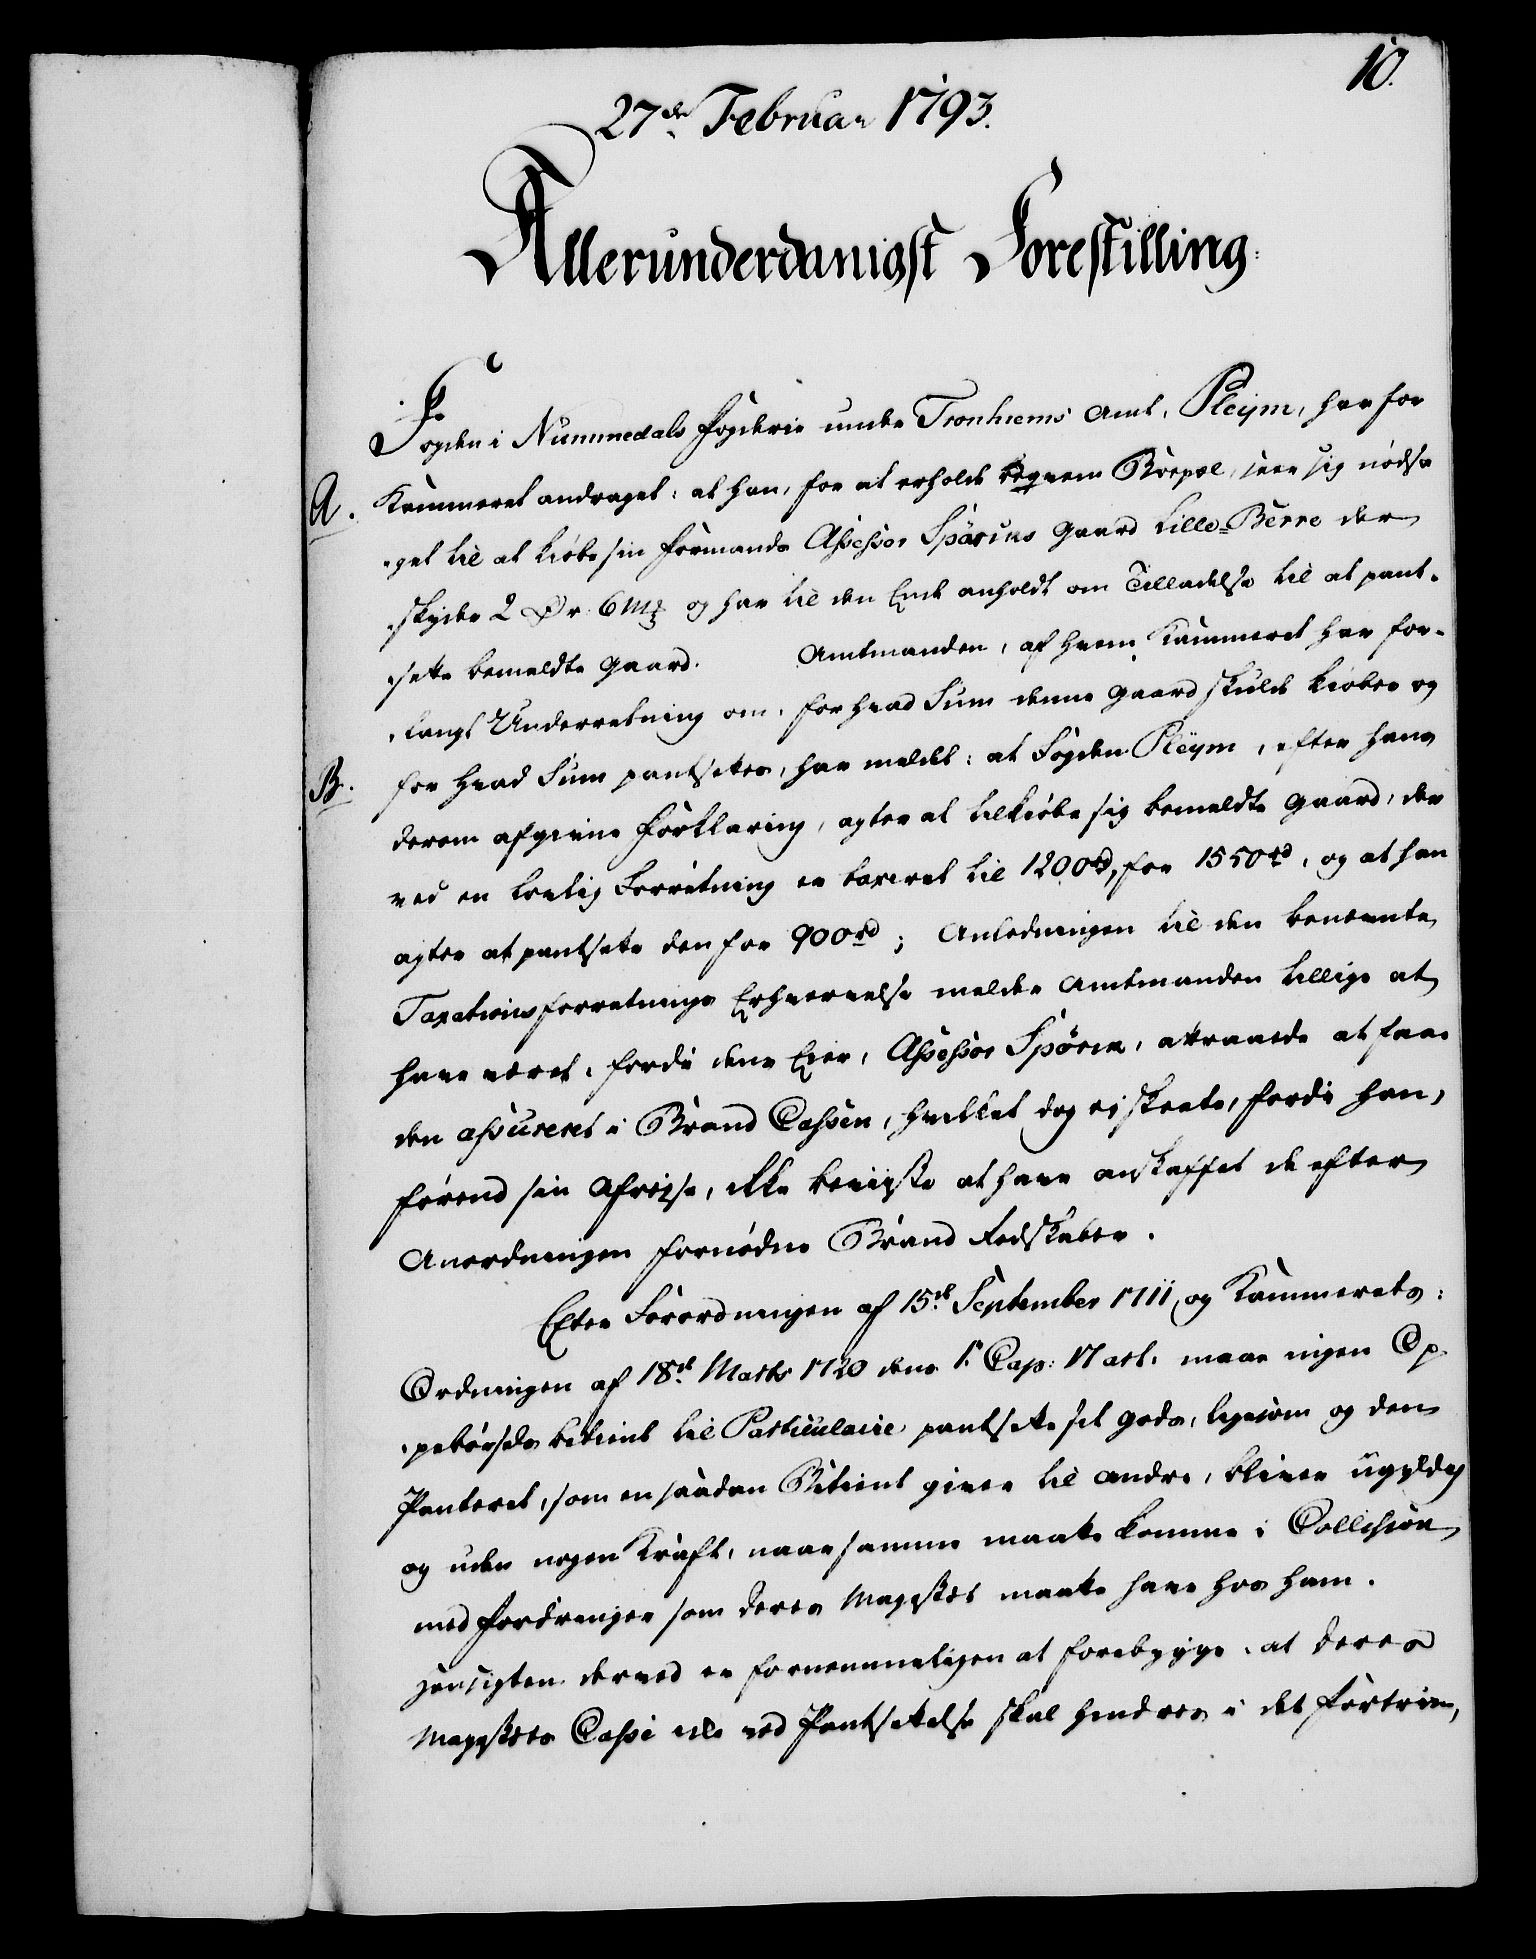 10.
27de Februar 1793.
Allerunderdanigst Forestilling:
Fogden i Nummedals Fogderie under Tronhiems Amt, Pleÿm, har for
A. Kammeret andraget: at han, for at erholde beqvem Boepæl, seer sig nødsa-
get til at kiøbe sin Formands Assessor Spörcks Gaard Lille-Berre der
skylder 2 Ør. 6 Mk og har til den Ende anholdt om Tilladelse til at pant-
sette bemeldte Gaard. Amtmanden, af hvem Kammeret har for-
langt Underretning om, for hvad Sum denne Gaard skulde kiøbes og
B. for hvad Sum pantsettes, har meldt: at Fogden Pleÿm, efter hans
derom afgivne Forklaring, agter at tilkiøbe sig bemeldte Gaard, der
ved en lovlig Forretning er taxeret til 1200rd, for 1550rd, og at han
agter at pantsette den for 900rd; Anledningen til den benevnte
Taxationsforretnings Erhvervelse melder Amtmanden tillige at
have været, fordi dens Eier, Assessor Spörck, attraaede at faae
den assureret i Brand Cassen, hvilket dog ej skeete, fordi han,
førend sin Afrejse, ikke beviiste at have anskaffet de efter
Anordningen fornødne Brand Redskaber.
Efter Forordningen af 15de September 1711, og Kammerets:
Ordningen af 18de Marts 1720 dens 1te Cap: 17 art. maae ingen Op-
pebørsels betient til Particulaire pantsette sit Gods, ligesom og den
Panteret, som en saadan Betient giver til andre, bliver ugyldig
og uden nogen Kraft, naar samme maatte komme i Collision
med Fordringer som Deres Majestet maatte have hos ham.
Hensigten dermed er fornemmeligen at forebygge, at Deres
Majestets Casse ikke ved Pantsettelse skal hindres i det Fortrin,